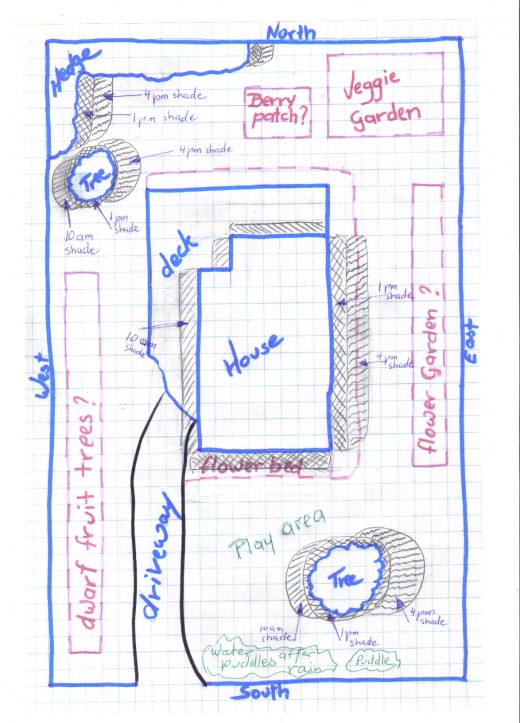 North
Hedge
4pm shade
1pm shade
Berry
patch?
Veggie
Garden
4pm shade
Tree
1pm
shade
10am
shade
deck
1pm
shade
10am
shade
House
4pm
shade
West
East
flower Garden?
dwarf fruit trees?
flower bed
driveway
Play area
Tree
10am
shade
1pm
shade
4pm
shade
water
puddles after
rain
Puddle
South